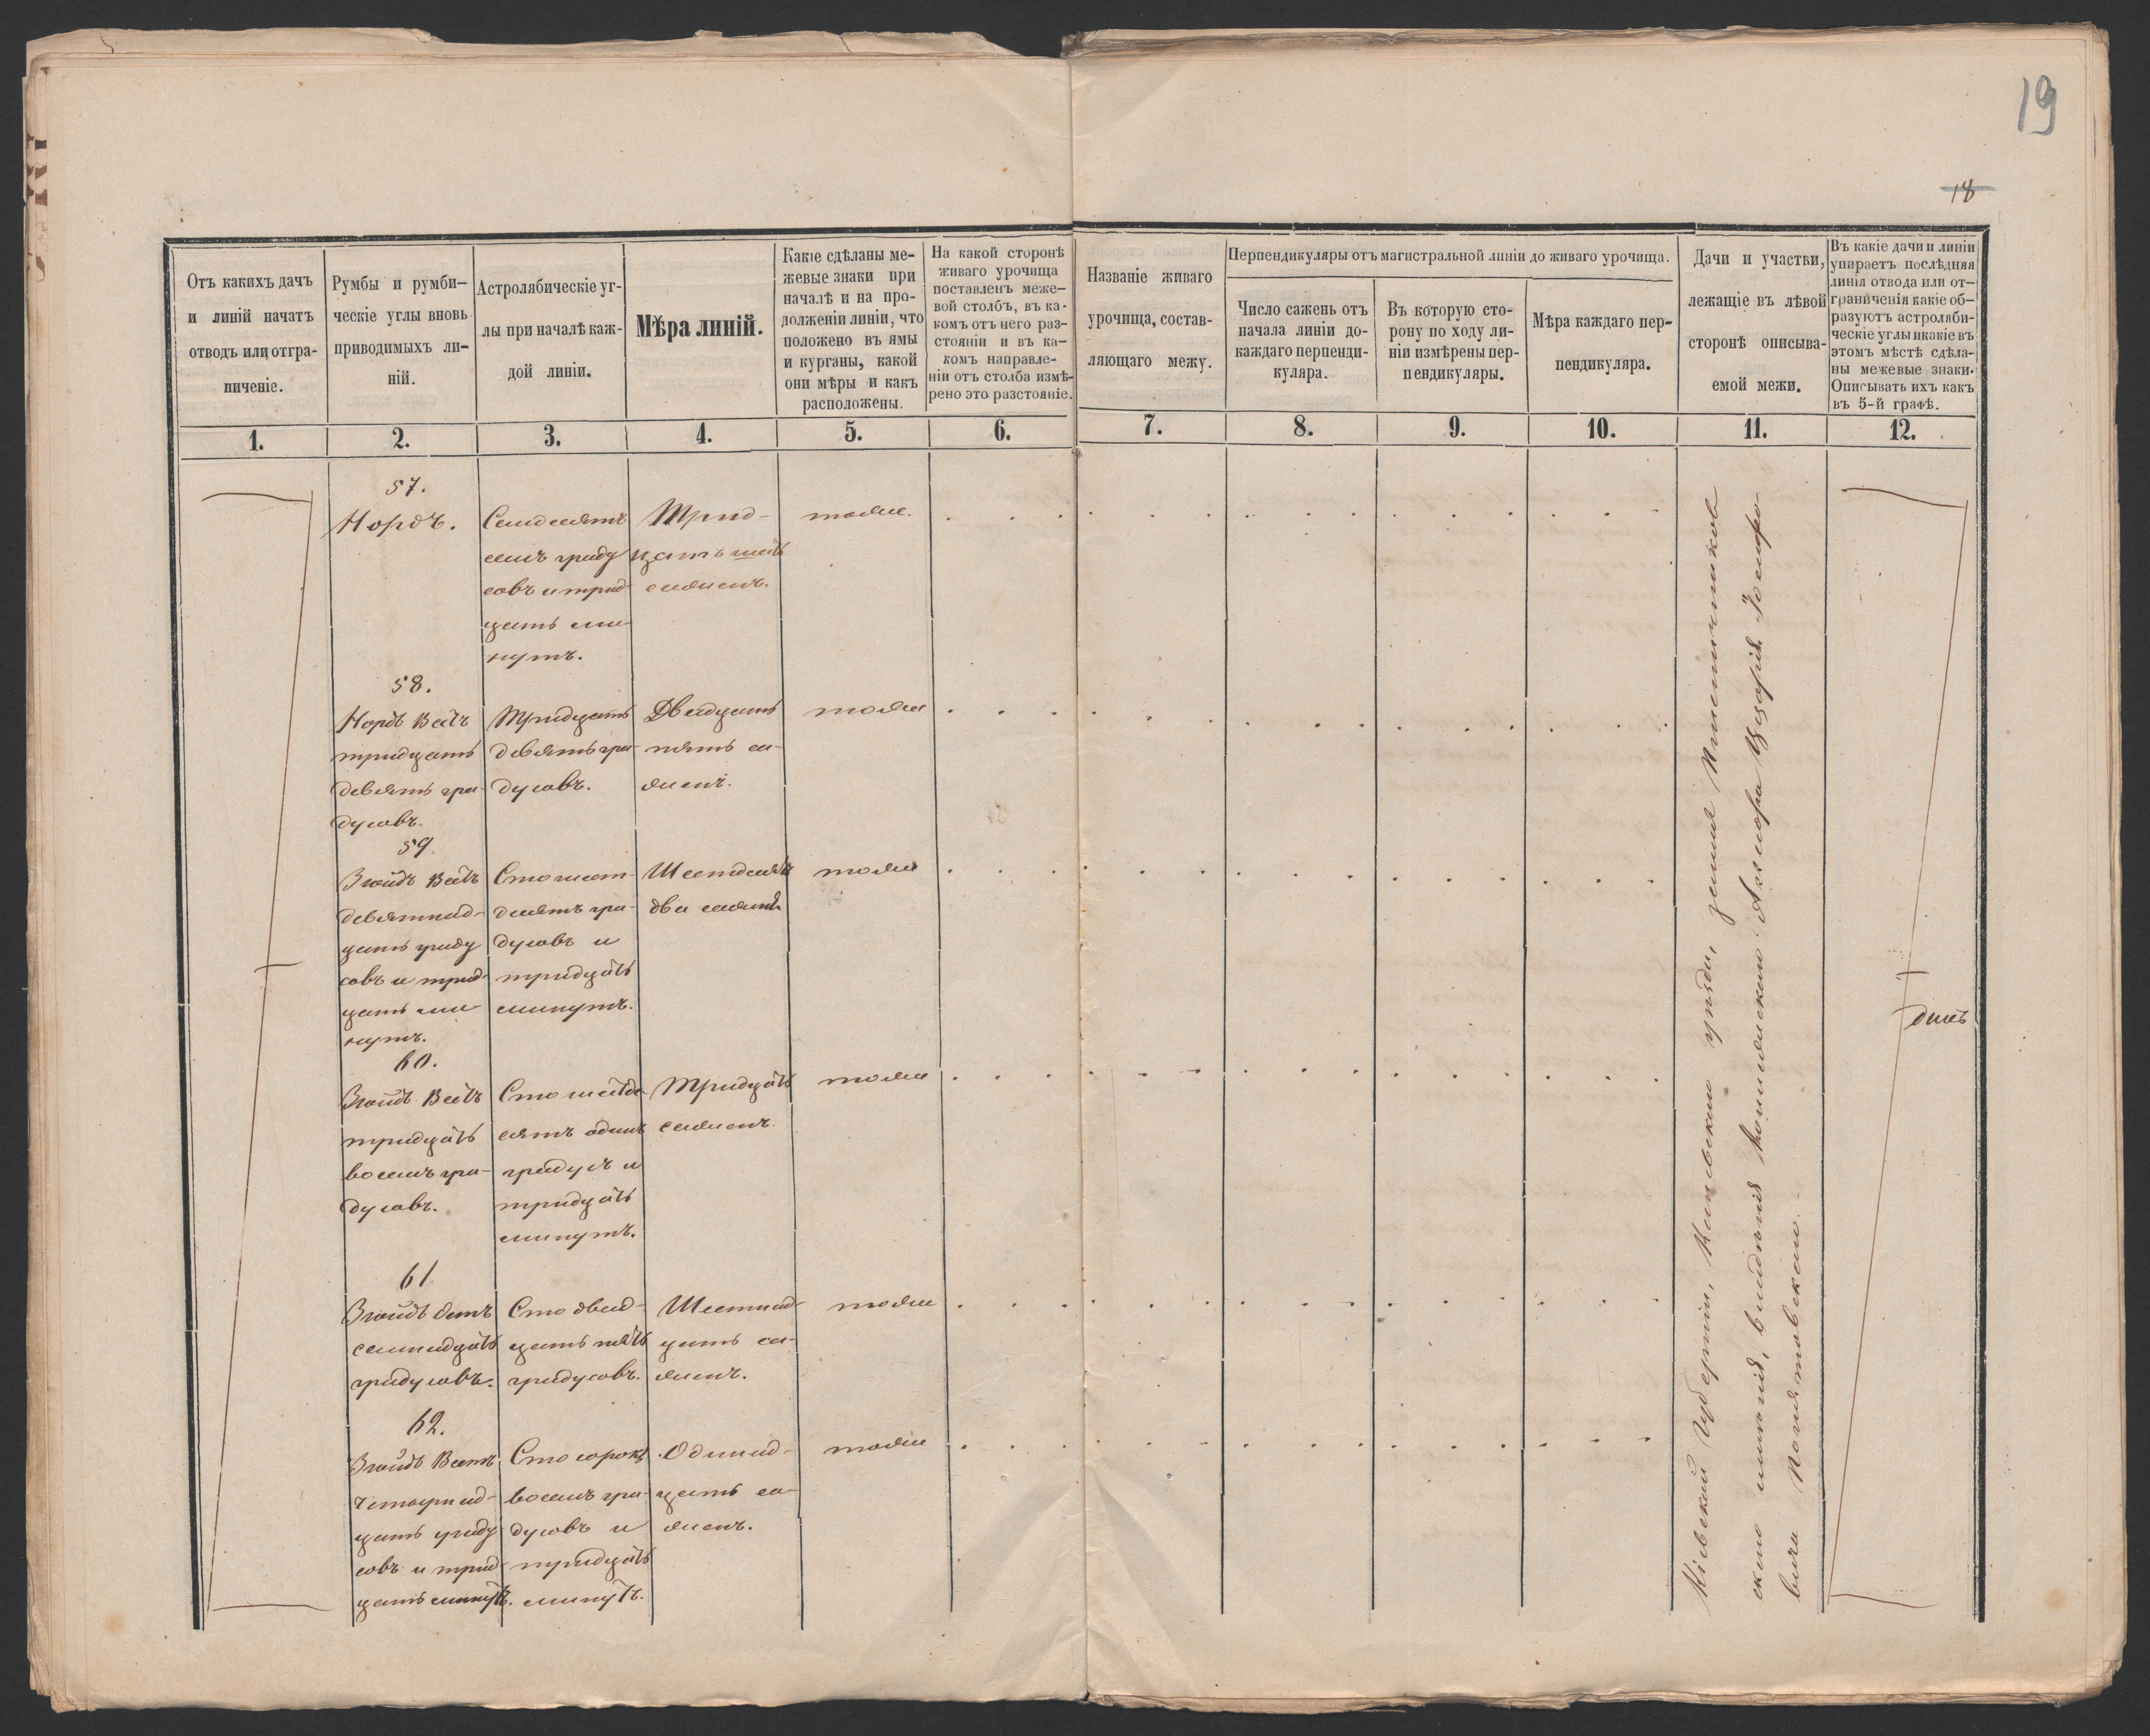 19
18
Отъ какихъ дачъ
и линій начатъ
отводъ или отгра-
ниченіе.
Румбы и румби-
ческіе углы вновь
приводимыхъ ли-
ній.
Астролябическіе уг-
лы при началѣ каж-
дой линіи.
Мѣра линій.
Какіе сдѣланы ме-
жевые знаки при
началѣ и на про-
долженіи линіи, что
положено въ ямы
и курганы, какой
они мѣры и какъ
расположены.
На какой сторонѣ
живаго урочища
поставленъ меже-
вой столбъ, въ ка-
комъ отъ него раз-
стояніи и въ ка-
комъ направле-
ніи отъ столба измѣ-
рено это разстояніе.
Названіе живаго
урочища, состав-
ляющаго межу.
Перпендикуляры отъ магистральной линіи до живаго урочища.
Число сажень отъ
начала линіи до-
каждаго перпенди-
куляра.
Въ которую сто-
рону по ходу ли-
ніи измѣрены пер-
пендикуляры.
Мѣра каждаго пер-
пендикуляра.
Дачи и участки,
лежащіе въ лѣвой
сторонѣ описыва-
емой межи.
Въ какіе дачи и линіи
упираетъ послѣдняя
линія отвода или от-
граниченія какіе об-
разуютъ астроляби-
ческіе углы и какіе въ
этомъ мѣстѣ сдѣла-
ны межевые знаки.
Описывать ихъ какъ
въ 5-й графѣ.
1.
2.
3.
4.
5.
6.
7.
8.
9.
10.
11.
12.
57.
Нордъ.
Семдесятъ
семъ граду
совъ и трид-
цать ми-
нутъ.
Трид-
цать шесть
сажень.
тоже.
58.
Нордъ Вестъ
тридцать
девять гра-
дусовъ.
Тридцать
девять гра-
дусовъ.
Двадцать
пять са-
жень.
тоже
59.
Зюйдъ Вестъ
девятнад-
цать граду
совъ и трид-
цать ми-
нутъ.
Сто шест-
десятъ гра-
дусовъ и
тридцать
минутъ.
Шестдесятъ
два сажня
тоже
60.
Зюйдъ Вестъ
тридцать
восемъ гра-
дусовъ.
Сто шестде
сятъ одинъ
градусъ и
тридцать
минутъ.
Тридцать
сажень.
тоже
61
Зюйдъ Остъ
семнадцать
градусовъ.
Сто двад-
цать пять
градусовъ.
Шестнад-
цать са-
жень.
тоже
62.
Зюйдъ Вестъ
четырнад-
цать граду
совъ и трид-
цать минутъ.
Сто сорокъ
восемъ гра-
дусовъ и
тридцать
минутъ.
Одинад-
цать са-
жень.
тоже
Кіевской Губерніи, Каневскаго уѣзда, земля Пшеничников
скаго имѣнія, владѣнія Колежскаго Ассесора Цезаря Іосифо-
вича Понятовскаго.